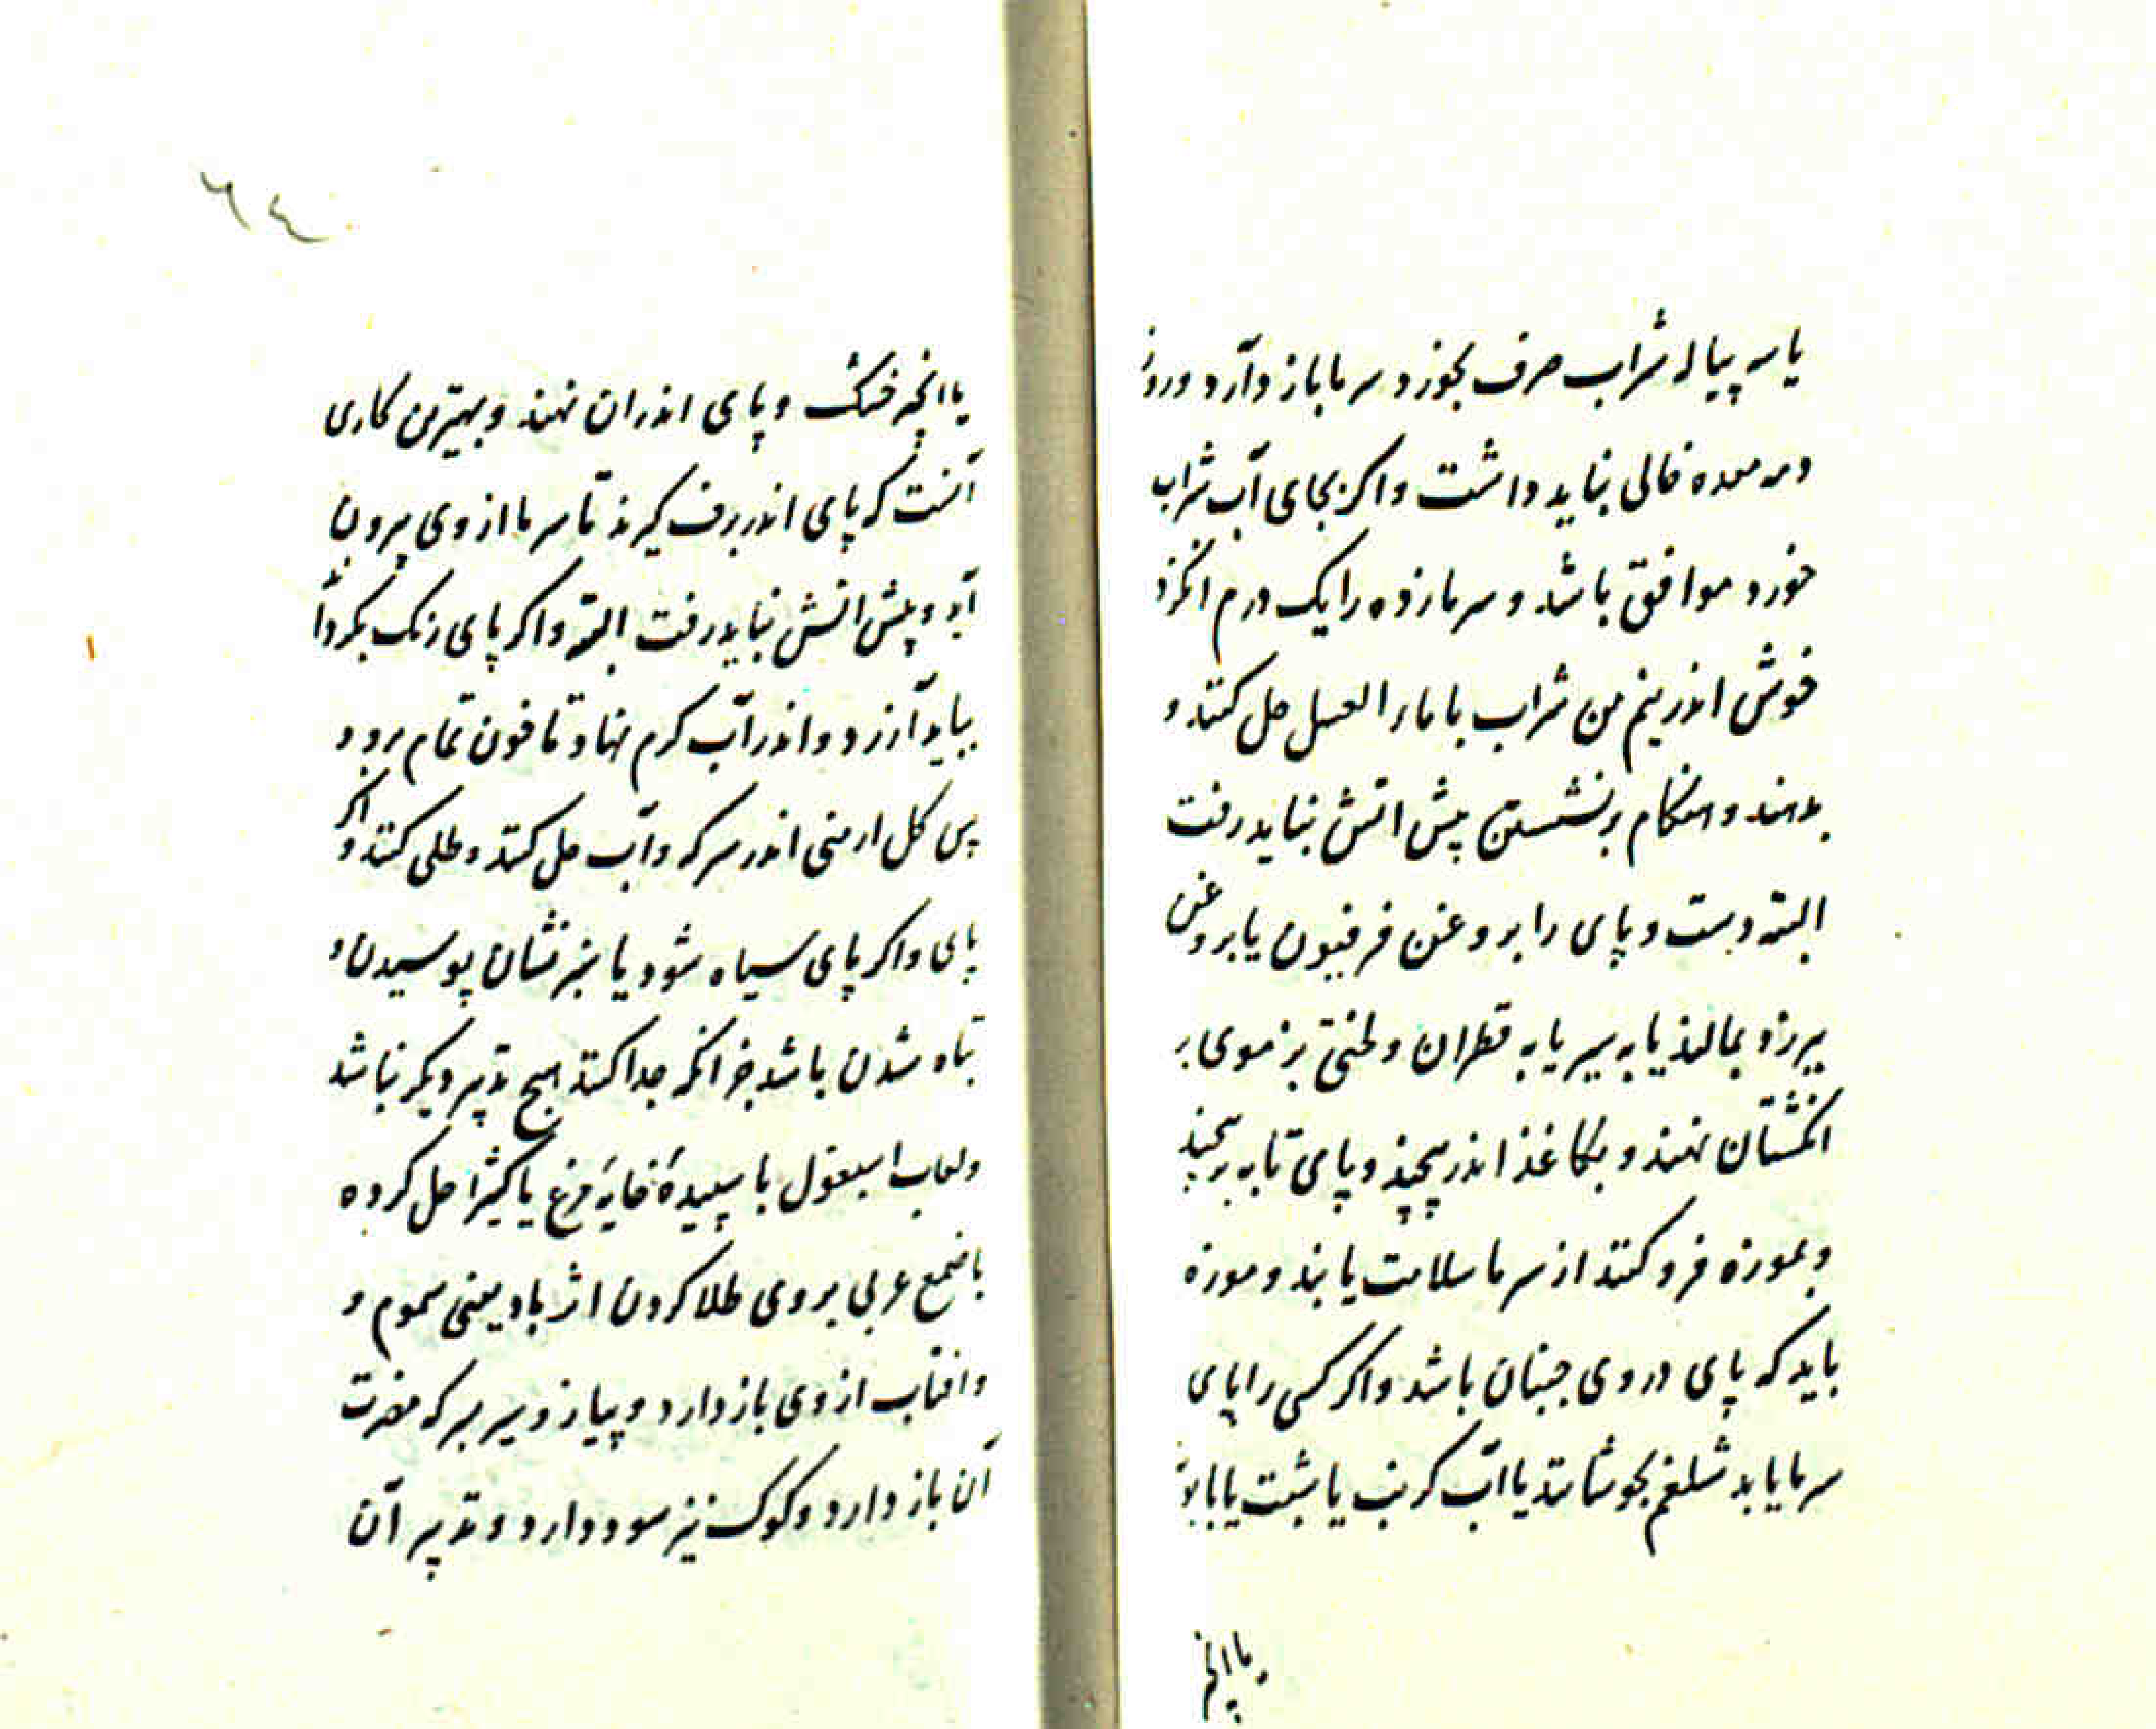 یا سه پیاله شراب صرف بخورد سرما باز دارد و روز
سرد معده خالی نباید داشت و اکر بجای آب شراب
خورد موافق باشد و سرمازده را یک درم انگزد
خوش اندر نیم من شراب با ماء العسل حل کنند و
بدهند و هنکام برنشستن پیش اتش نباید رفت
البته و دست و پای را بروغن فرفیون یا بروغن
بمالند یا به سیر یا به قطران و لختی بز موی بر
انکشتان نهند و بکاغذ اندر پیچند و پای تابه بر پیچند
و بموزه فرو کنند از سرما سلامت یابند و موزه
باید که پای در وی جنبان باشد و اکر کسی را پای
سرما یابد شلغم بجوشانند یا آب کرنب یا شبت یا بابونه
یا انجیر
٦٤
یا انجیر خشک و پای اندران نهند و بهترین کاری
آنست که پای اندر برف کیرند تا سرما از وی بیرون
آید و پیش اتش نباید رفت البته و اکر پای رنک بکرداند
بباید آزرد و اندر آب کرم نهاد تا خون تمام برود
پس کل ارمنی اندر سرکه و آب حل کنند و طلی کنند و اکر
پای و اکر پای سیاه شود یا سبز نشان پوسیدن و
تباه شدن باشد جز انکه جدا کنند هیچ تدبیر دیکر نباشد
و لعاب اسبغول با سپیدهٔ خایهٔ مرغ یا کثیرا حل کرده
با صمغ عربی بر وی طلا کردن اثر باد یعنی سموم و
و افتاب از وی باز دارد و پیاز و سیر بسرکه مضرت
آن باز دارد و کوک نیز سود دارد و تدبیر آن